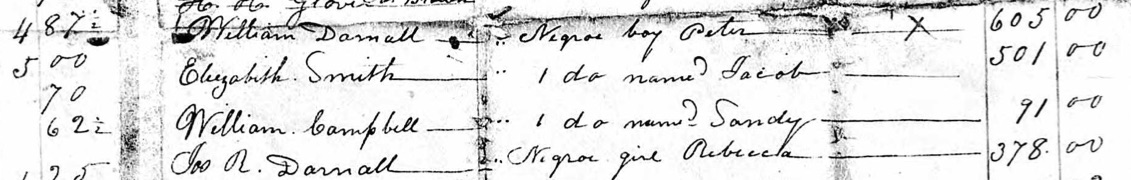 4 87½ William Darnall " Negroe boy Peter X 605 00
5 00 Elizabeth Smith " 1 do named Jacob 501 00
70
62½ William Campbell " 1 do named Sandy 91 00
Jos R. Darnall " Negroe girl Rebecca 378 00